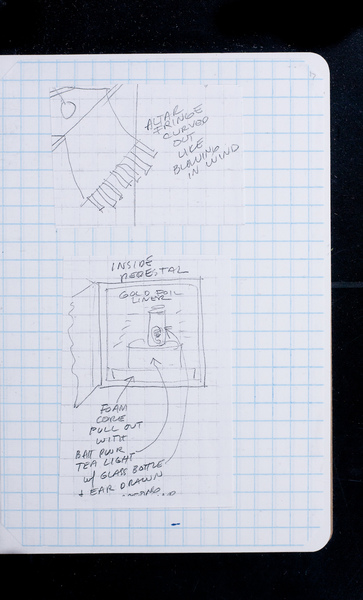 ALTAR
FRINGE
CURVED
OUT
LIKE
BLOWING
IN WIND
INSIDE
PEDESTAL
GOLD FOIL
LINER
FOAM
CORE
PULL OUT
WITH
BATT PWR
TEA LIGHT
w/ GLASS BOTTLE
+ EAR DRAWN